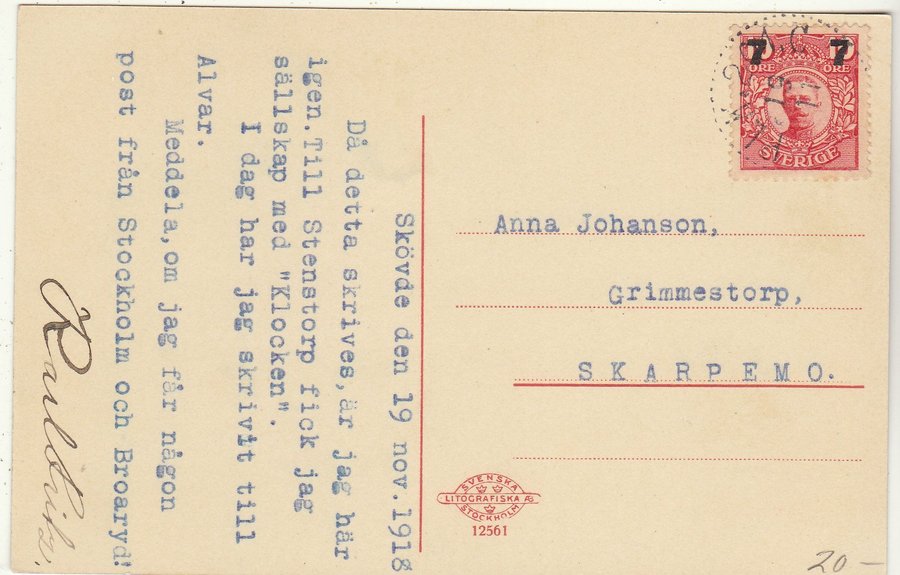 Skövde den 19 nov.1918
Då detta skrives,är jag här
igen.Till Stenstorp fick jag
sällskap med "Klocken".
I dag har jag skrivit till
Alvar.
Meddela,om jag får någon
post från Stockholm och Broaryd!
7 7
ÖRE ÖRE
SVERIGE
Anna Johanson,
Grimmestorp,
SKARPEMO.
SVENSKA
LITOGRAFISKA AB
STOCKHOLM
12561
20-